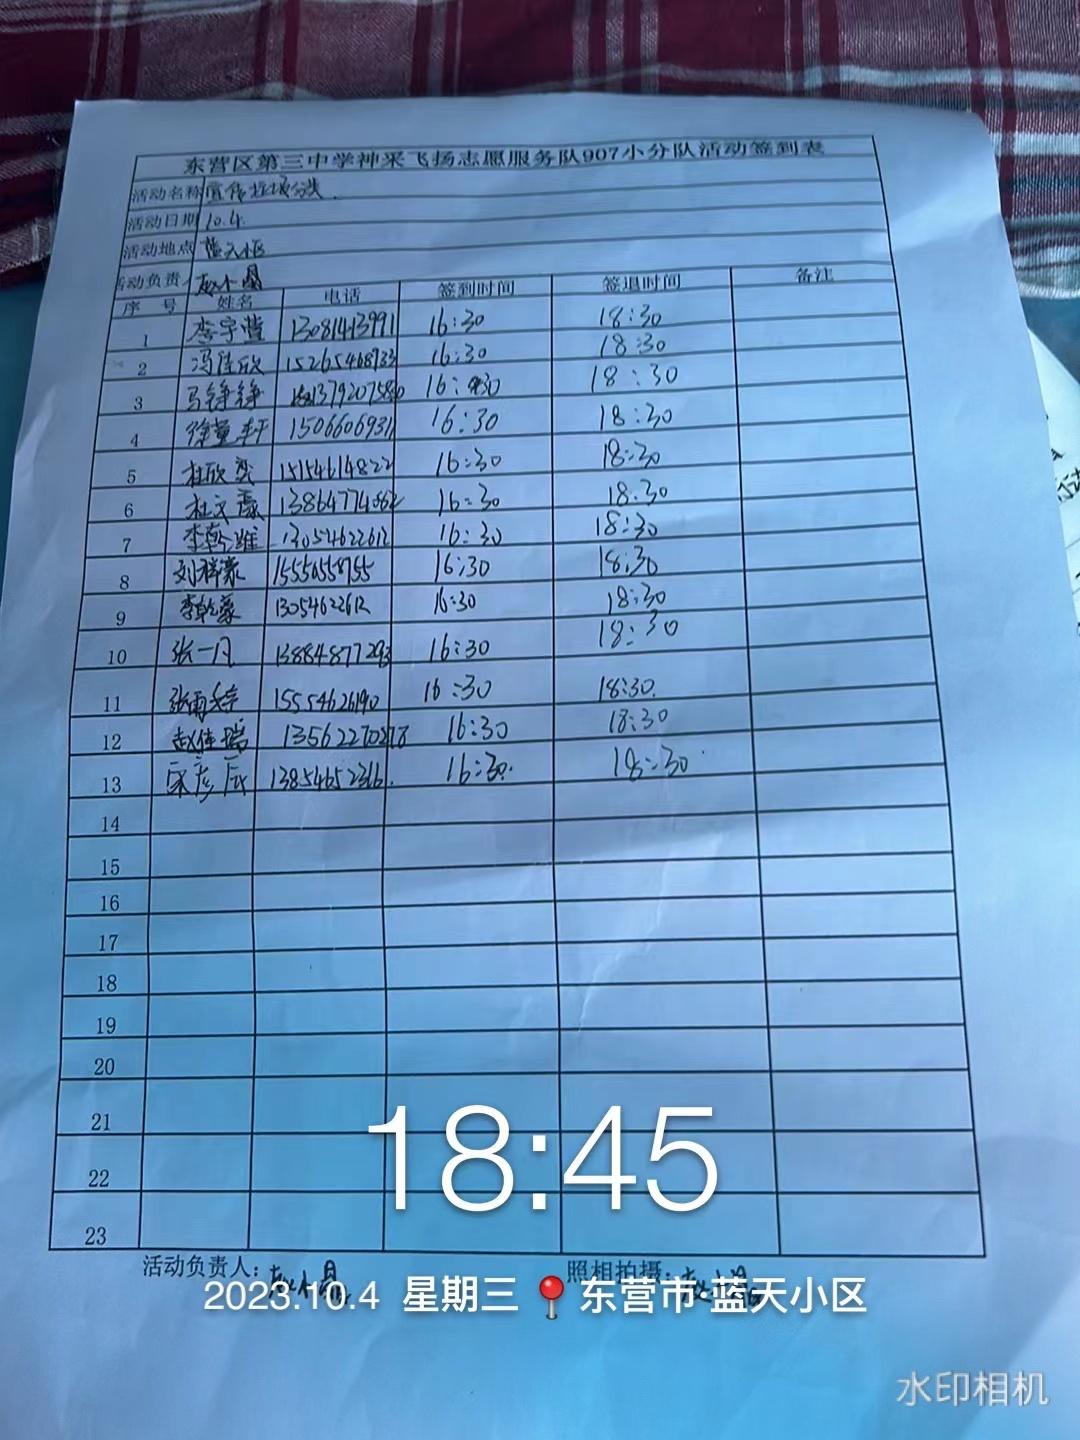 东营区第三中学神采飞扬志愿服务队907小分队活动签到表
活动名称 宣传垃圾分类.
活动日期 10.4
活动地点 蓝天小区
活动负责人 赵小晶
序 号 姓名 电话 签到时间 签退时间 备注
1 李宇萱 13081413991 16:30 18:30
2 冯佳欣 15265468933 16:30 18:30
3 马铮铮 16:30 18:30
4 徐童轩 1506606931 16:30 18:30
5 杜欣奕 15154614822 16:30 18:30
6 杜文 16:30 18.30
7 李乾 13054622612 16:30 18:30
8 刘祥 16:30 18:30
9 李乾 1305462262 16:30 18:30
10 张一凡 13884877293 16:30 18:30
11 张雨 15554626190 16:30 18:30.
12 赵佳瑞 16:30 18:30
13 宋彦辰 16:30. 18:30
14
15
16
17
18
19
20
21
22
23
18:45
活动负责人: 赵小晶 照相拍摄: 赵小晶
2023.10.4 星期三 东营市·蓝天小区
水印相机